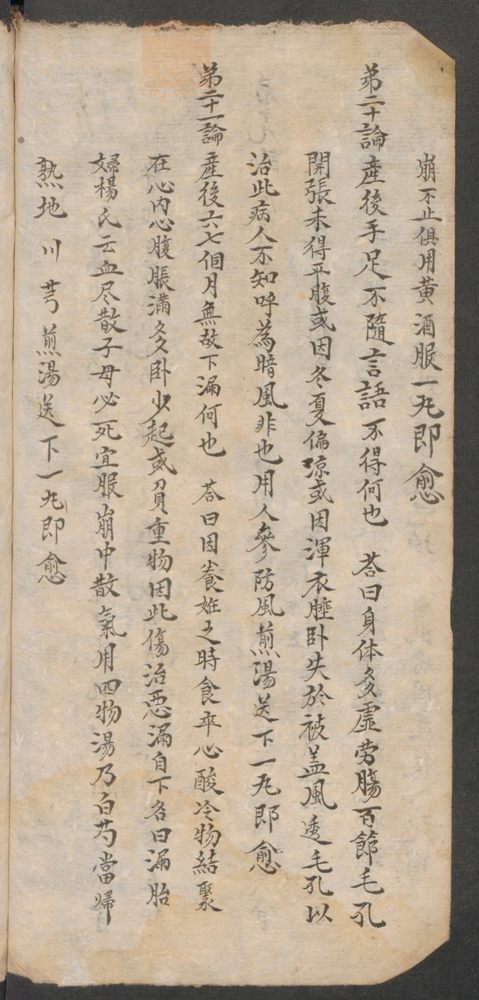 崩不止俱用黄酒服一丸即愈
第二十論 産後手足不隨言語不得何也 荅曰身体多虚劳腸百節毛孔
開張未得平腹或因冬夏偏凉或因渾衣睡卧失於被盖風透毛孔以
治此病人不知呼為暗風非也用人參防風煎湯送下一丸即愈
第二十一論 産後六七個月無故下漏何也 荅曰因养姙之時食平心酸冷物結聚
在心内心腹脹滿多卧少起或負重物因此傷治悪漏自下名曰漏胎
婦楊氏云血尽散子母必死宜服崩中散氣用四物湯乃白芍當歸
熟地川芎煎湯送下一丸即愈